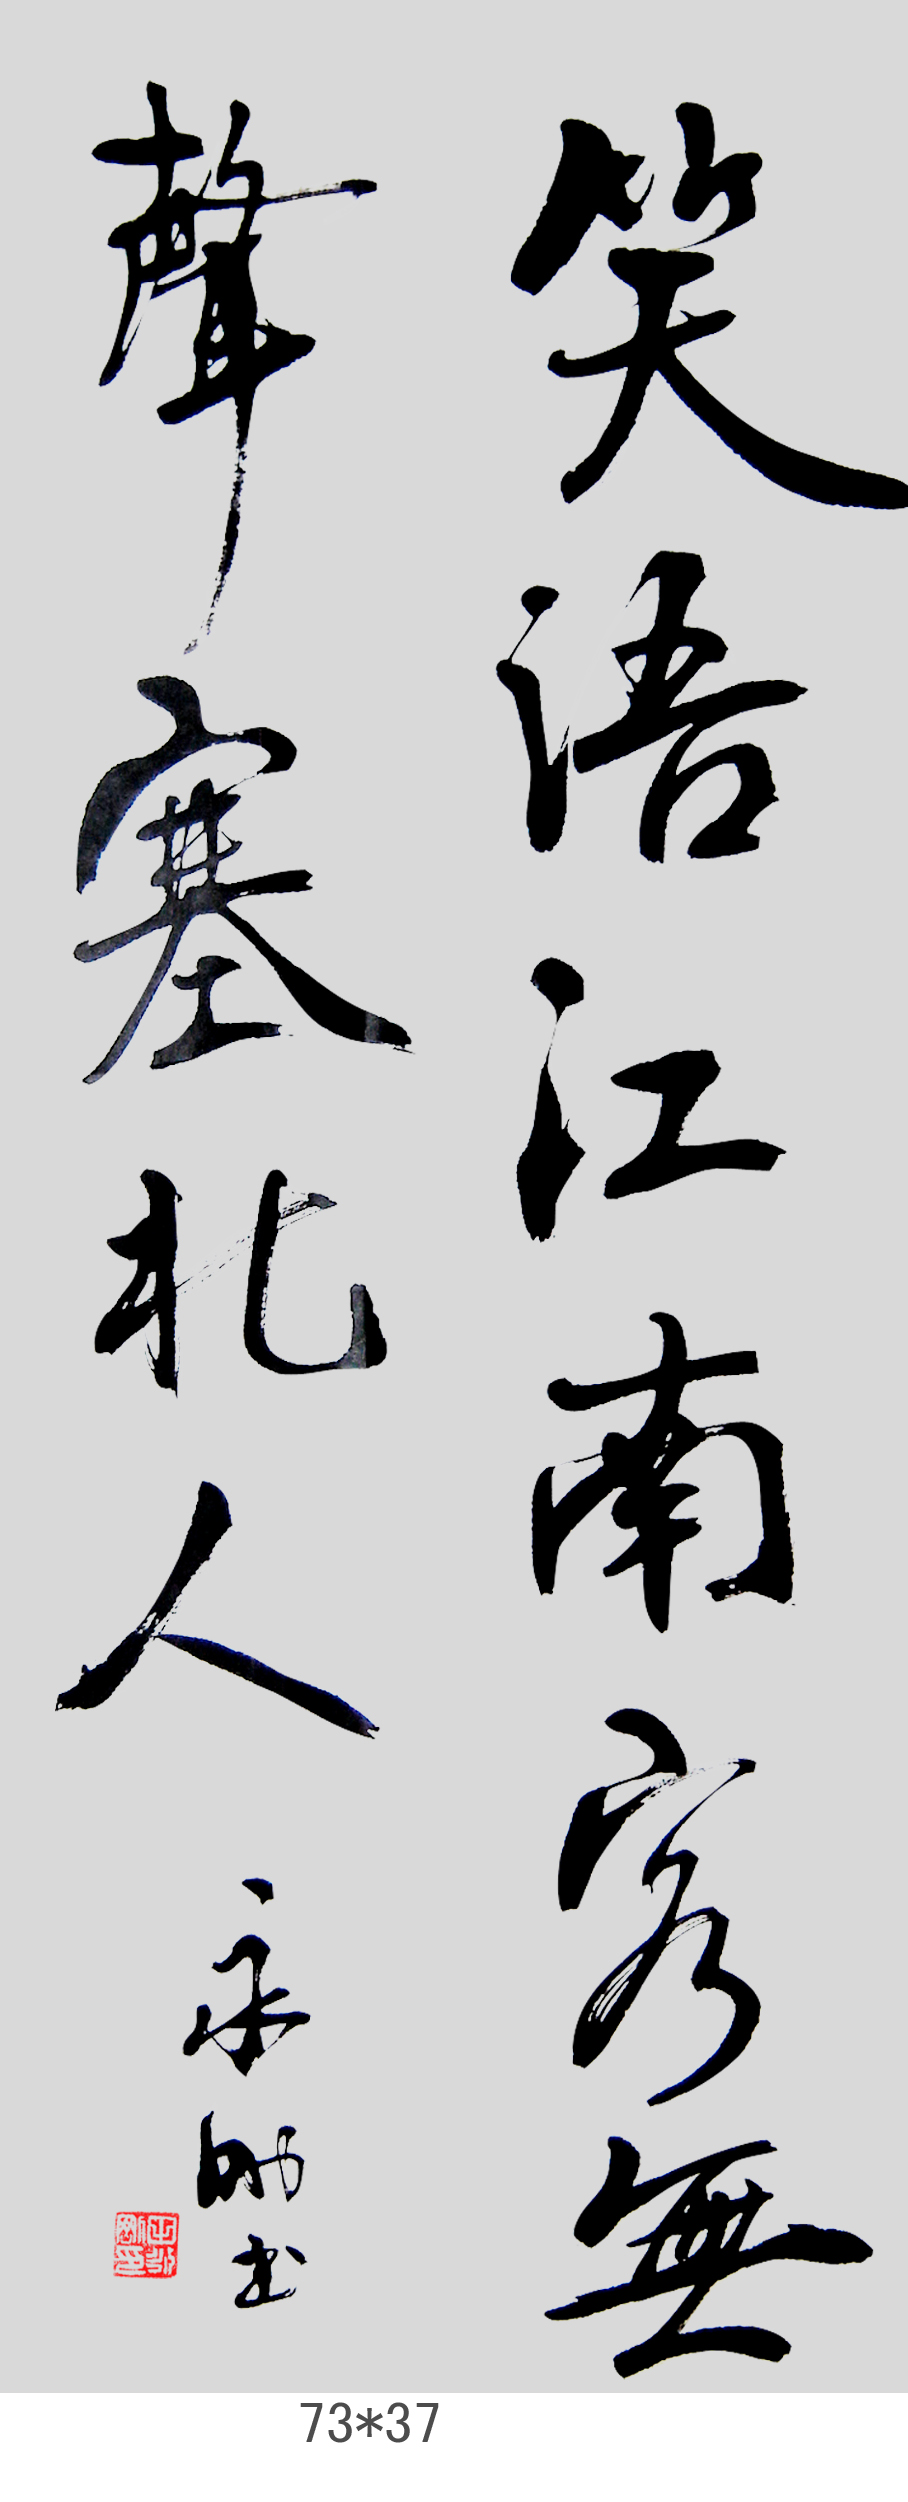 笑語江南客無
聲塞北人
永師书
73*37